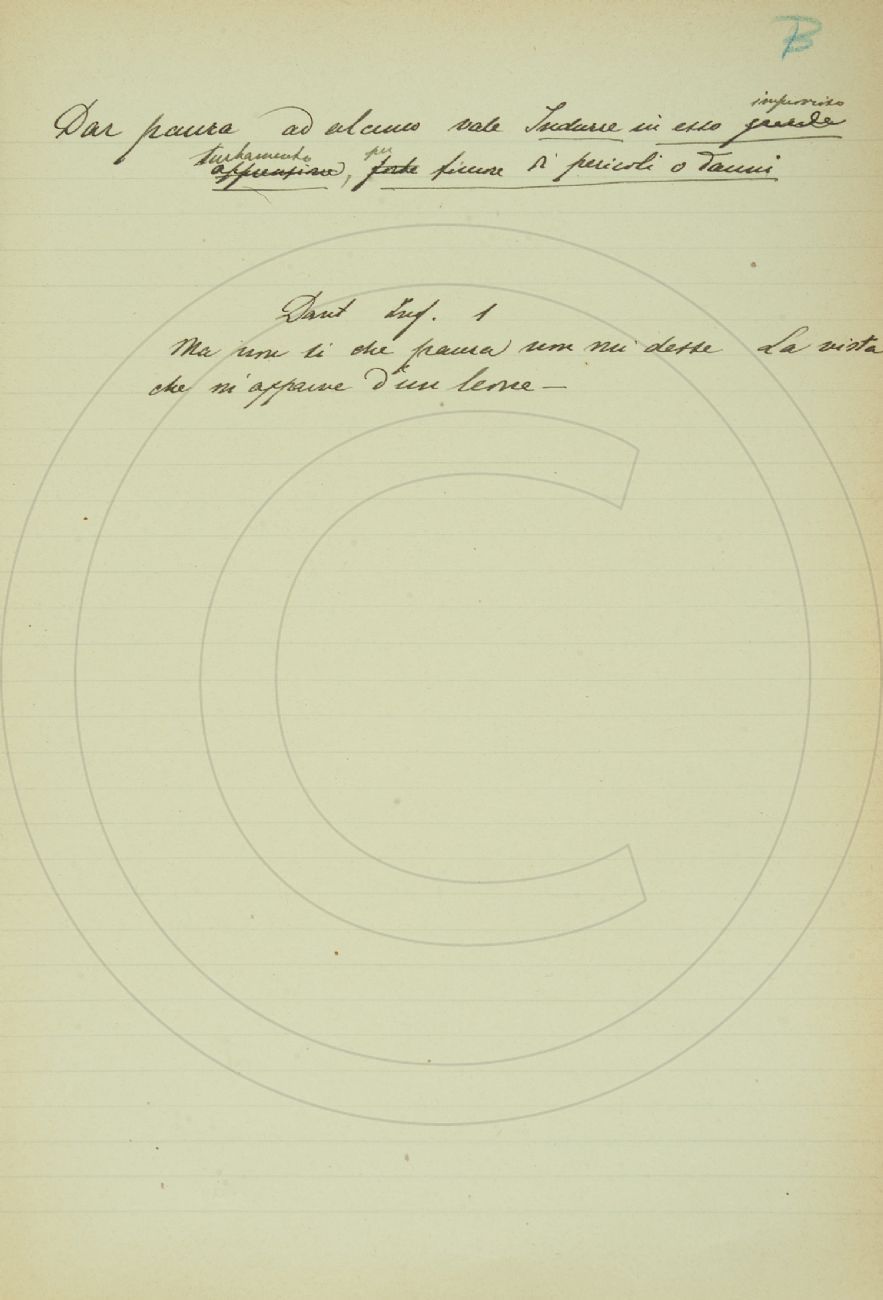 B
Dar paura ad alcuno vale Indurre in esso grande improvviso
apprensione turbamento, forte per timore di pericoli o danni
Dant Inf. 1
Ma non si che paura non mi desse La vista
che m'apparve d'un leone —